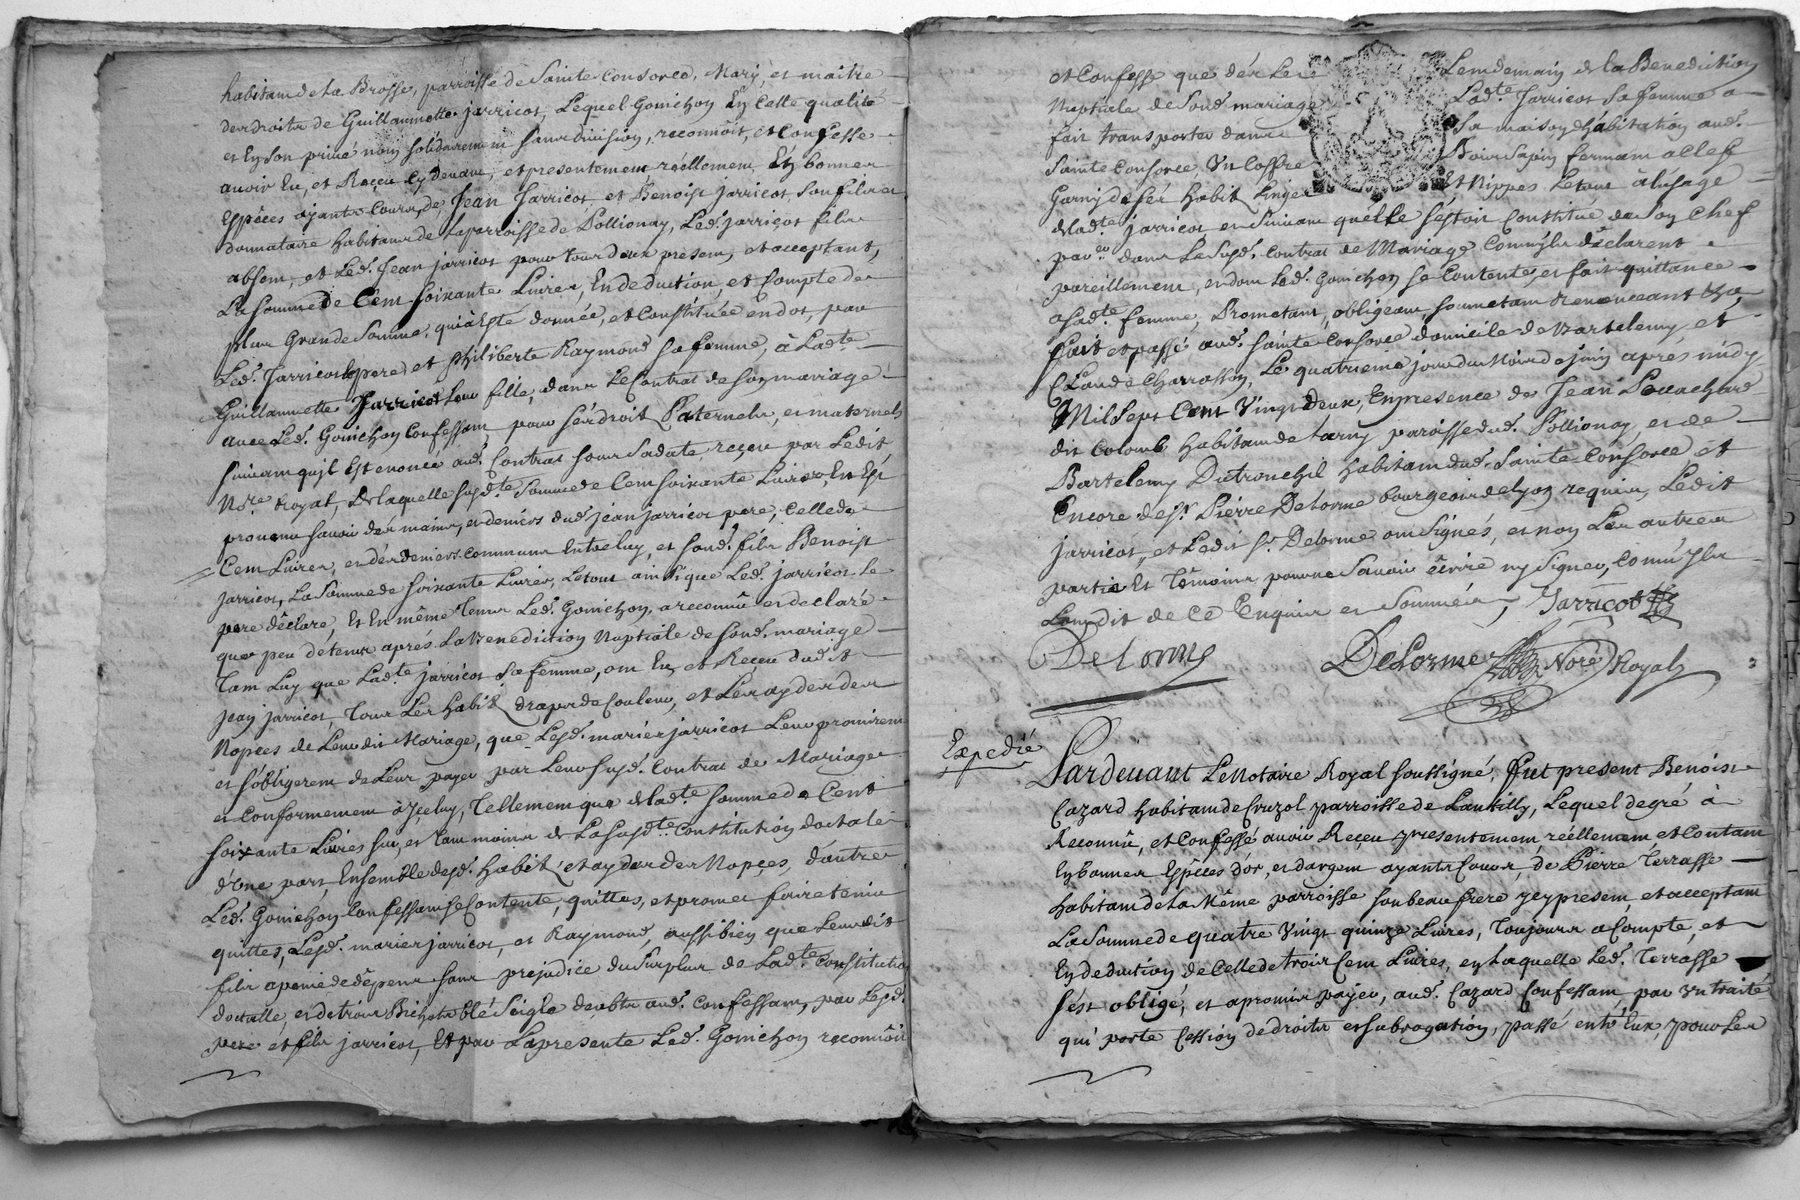 habitant de La Brosse, parroisse de Sainte Consorce, Mary, et maitre
des droits de Guillaumette Jarricot, Lequel Gonichon En Cette qualité
et En son privé nom solidairement sans division, reconnoit, et Confesse
avoir Eu, et Reçeu Cy devant, et presentement réellement, En bonnes
Espêces ajants Cours, de Jean Jarricot, et Benoist Jarricot, son fils et
donnataire habitans de La parroisse de Pollionay, Led. Jarricot fils
absent, et Led. Jean Jarricot pour tous deux present, et acceptant,
La Somme de Cent soixante Livres, En deduction, et Compte de
plus Grande Somme, qui a Esté donnée, et Constituée en dot, par
Led. Jarricot pere, et Philiberte Raymond sa femme, à Lad.te
Guillaumette Jarricot Leur fille, dans Le Contrat de son mariage
avec Led. Gonichon Confessant pour ses droits Paternels, et maternels
suivant qu'il Est enoncé aud. Contrat sous sa date, reçeu par Ledit
N.re Royal, de laquelle susd.te Somme de Cent soixante Livres, En Est
provenu savoir des mains, et deniers dud. Jean Jarricot pere, Celle de
Cent Livres, et des deniers Communs Entre luy, et sond. fils Benoist
Jarricot, La Somme de soixante Livres, Le tout ainsi que Led. Jarricot le
pere déclare, Et En même Tems Led. Gonichon, a reconnû et declaré
que peu de tems aprés La Benediction Nuptiale de sond. mariage
Tant Luy que Lad.te Jarricot sa femme, ont Eu, et Reçeu dudit
Jean Jarricot, Tous Les habits draps de Couleur, et Les aydes des
Nopces de Leurdit Mariage, que Lesd. mariés Jarricot Leur promirent
et s'obligerent de Leur payer par Leur susd. Contrat de Mariage
et Conformement à Iceluy, Tellement que de Lad.te Somme de Cent
soixante Livres sur, et tant moins de La susd.te Constitution dotale
d'Une part, Ensemble desd. habits et aydes des Nopces, d'autre
Led. Gonichon Confessant se Contente, quittes, et promet faire tenir
quittes, Lesd. mariés Jarricot, et Raymond, aussi bien que Leurdit
fils a peine de dêpens sans prejudice du Surplus de Lad.te Constitution
dotalle, et de trois Bichets blé seigle deubts aud. Confessant, par Lesd.
pere et fils Jarricot, Et par La presente Led. Gonichon reconnoit
et Confesse que dés Le Lendemain de la Benediction
Nuptiale de sond. mariage Lad.te Jarricot sa femme a
fait transporter dans sa maison d'habitation aud.
Sainte Consorce, Un Coffre Bois sapin fermant a Clef
Garny de ses habits Linges Et Nippes Le tout à l'usage
de Lad.te Jarricot et suivant qu'elle s'Estoit Constitué de son Chef
par dans La susd. Contrat de Mariage Comm'ils déclarent
pareillement, et dont Led. Gonichon se Contente, et fait quittance
a sad.te femme, Prometant, obligeant, soumetant Renonceant &a,
fait et passé aud. Sainte Consorce domicile de Bartelemy, et
Claude Charrasson, Le quatrieme jour du Mois de Juin aprés midy
Mil Sept Cent Vingt deux, En presence de Jean Pouachard
dit Colomb habitant de Larny paroisse dud. Pollionay, et de
Bartelemy Dutronchil habitant dud. Sainte Consorce et
Encore de s.r Pierre Delorme bourgeois de Lyon requis, Ledit
Jarricot, et Ledit s.r Delorme ont signés, et non Les autres
partie Et Têmoins pour ne savoir êcrire ny signer, Comm'ils
L'ont dit de Ce Enquis et Sommés, Jarricot
Delorme Delorme Nore Royal
Expedié
Pardevant Le Notaire Royal soussigné, fut present Benoist
Cazard habitant de Cruzol parroisse de Lentilly, Lequel de gré à
Reconnû, et Confessé avoir Reçeu presentement, réellement, et Contant
En bonnes Espêces d'or, et d'argent ayants Cours, de Pierre Terrasse
habitant de La Même parroisse son beau frere icy present, et acceptant
La Somme de quatre Vingt quinze Livres, Toujours a Compte, et
En deduction de Celle de trois Cent Livres, en Laquelle Led. Terrasse
s'est obligé, et a promis payer, aud. Cazard Confessant, par Un traité
qui porte Cession de droits et subrogation, passé entr'Eux, pour Les